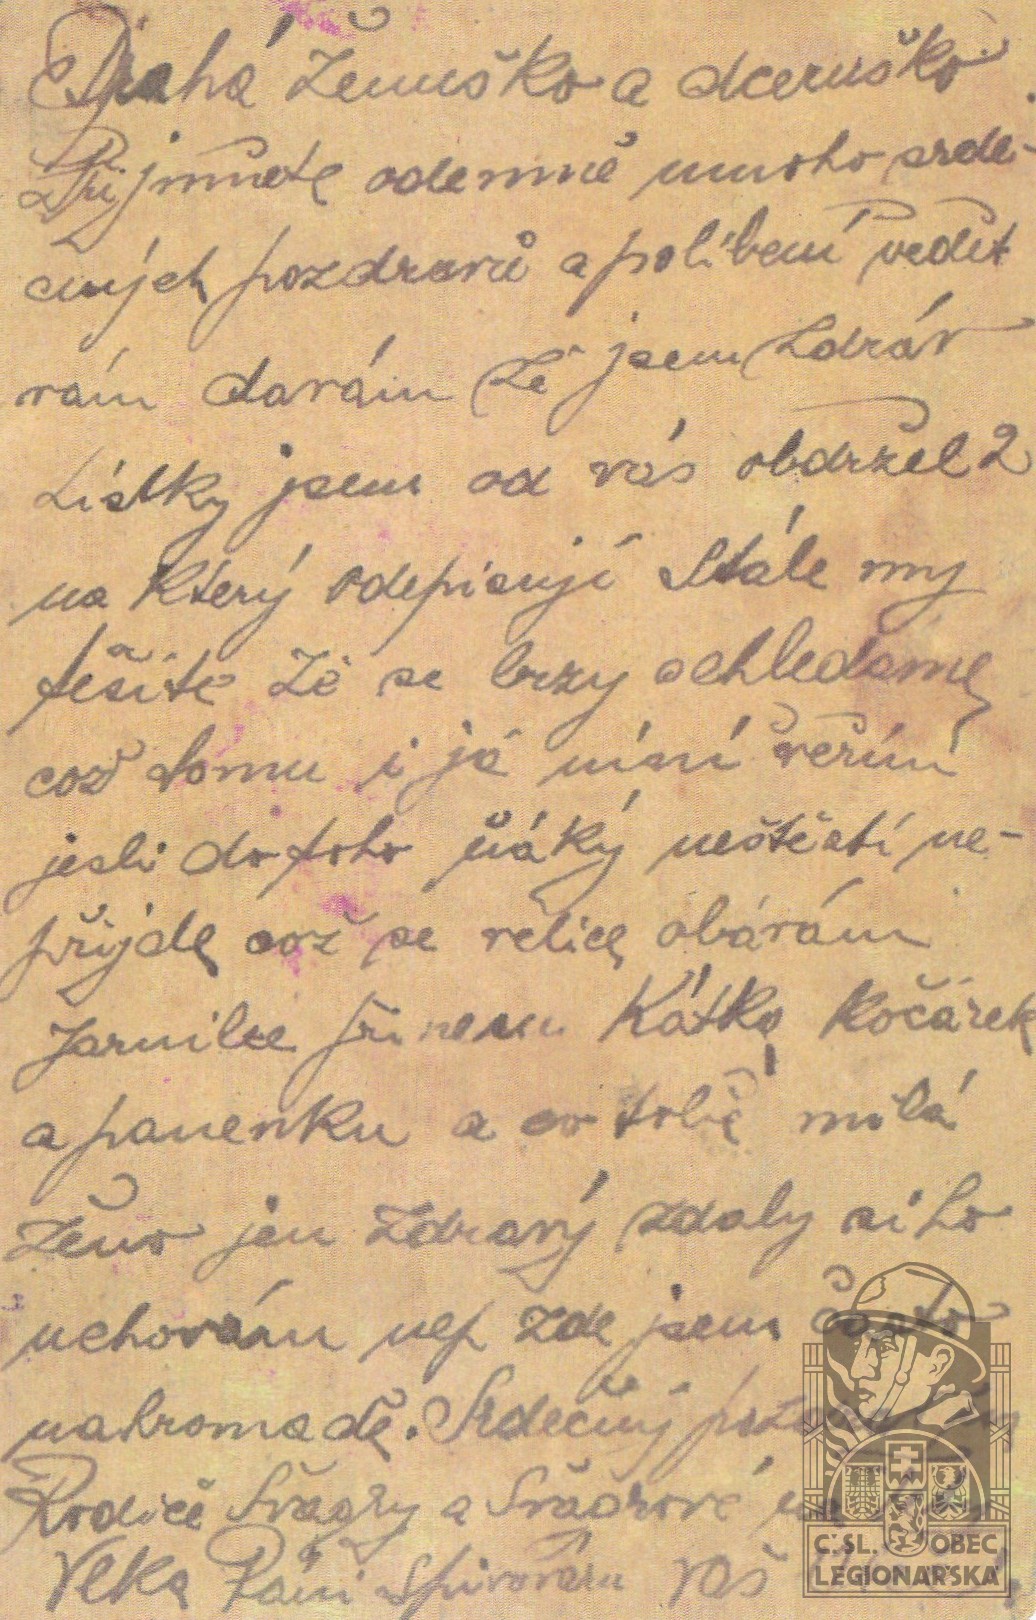 Drahá ženuško a dceruško
Přijmněte odemně mnoho srde-
čných pozdravů a políbení vědět
vám dávám že jsem zdráv
Lístky jsem od vás obdržel 2
na který odepisují Stále my
těšíte že se brzy schledáme
což tomu i já věřím
jesli do toho ňáký neštěstí ne-
přijde což se velice obávám
Jarmilce přinesu Kočárek
a panenku a co tobě milá
ženo jen zdravý zdaly si ho
uchovám nep zde jsem často
nahromadě. Srdečný
Rodiče Švagry a Švagrové
Velka Páni váš
Č.SL. OBEC
LEGIONÁŘSKÁ